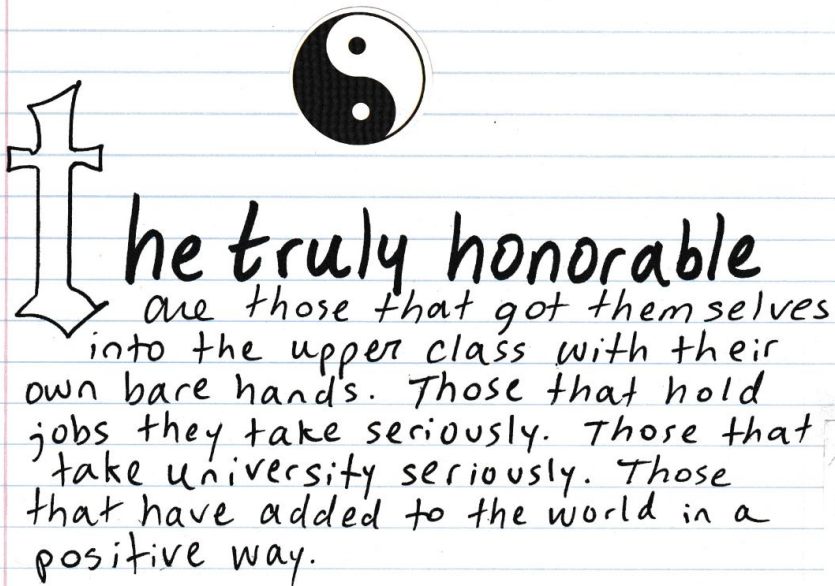 the truly honorable
are those that got themselves
into the upper class with their
own bare hands. Those that hold
jobs they take seriously. Those that
take university seriously. Those
that have added to the world in a
positive way.